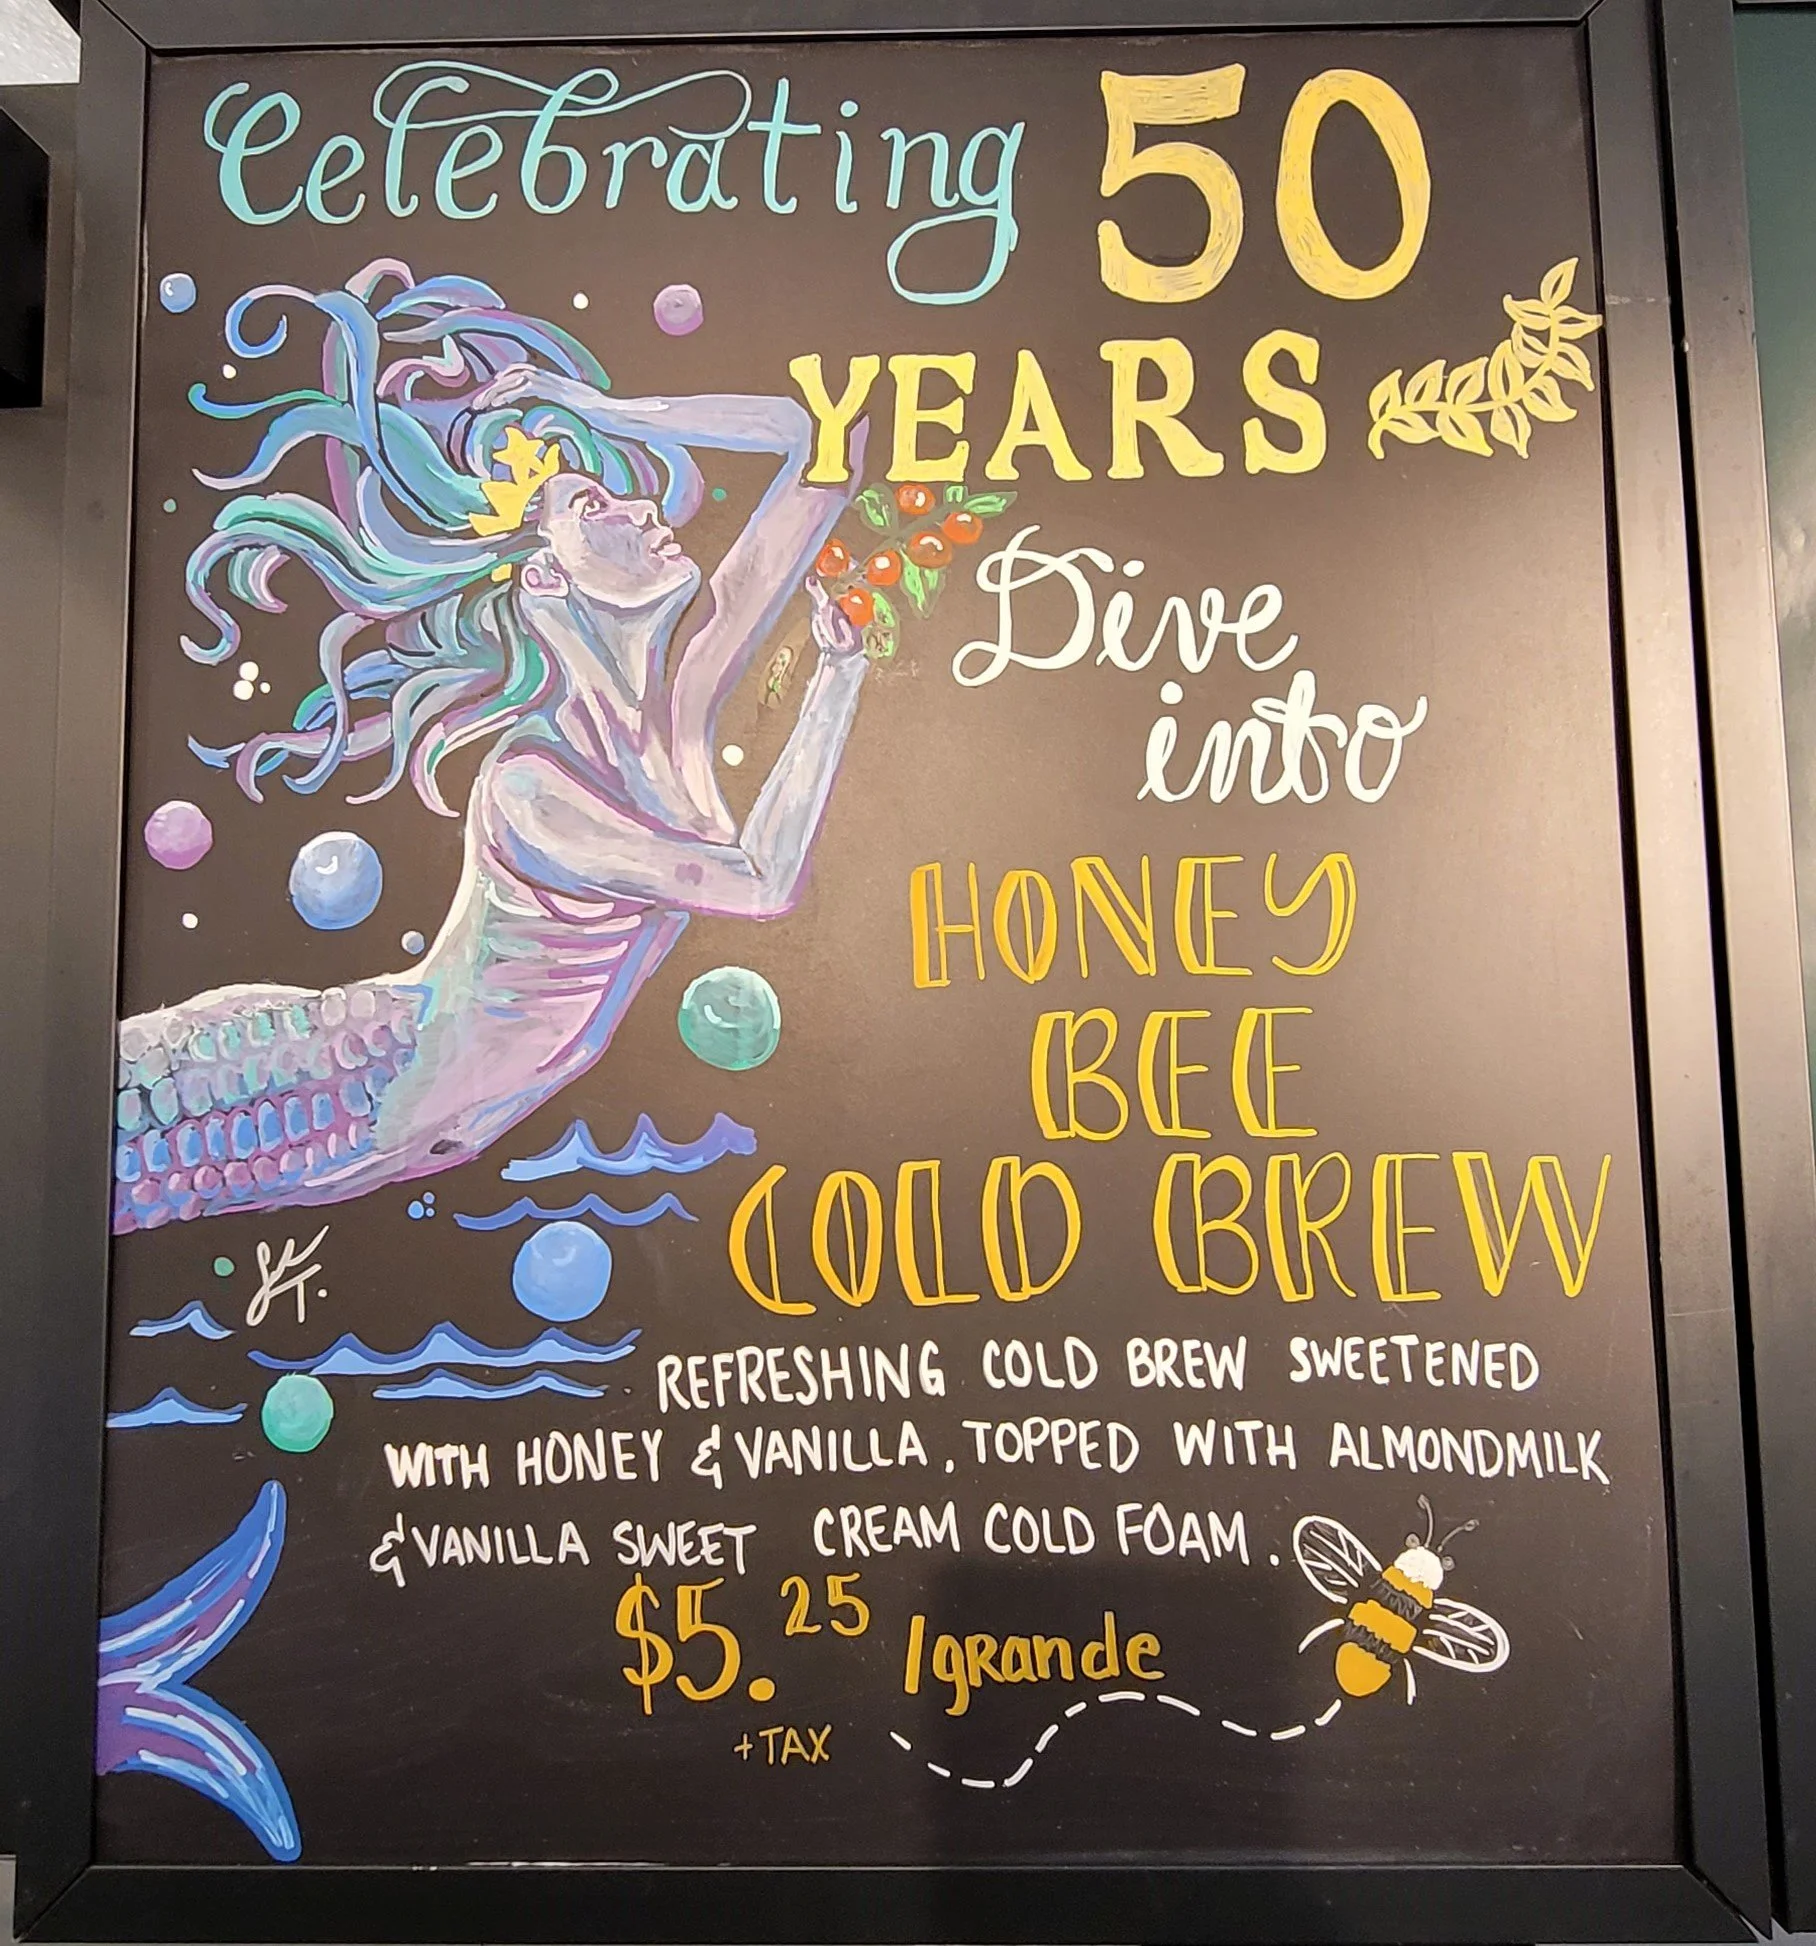 Celebrating 50
YEARS
Dive
into
HONEY
BEE
COLD BREW
REFRESHING COLD BREW SWEETENED
WITH HONEY & VANILLA, TOPPED WITH ALMONDMILK
& VANILLA SWEET CREAM COLD FOAM.
$5.25 /grande
+TAX